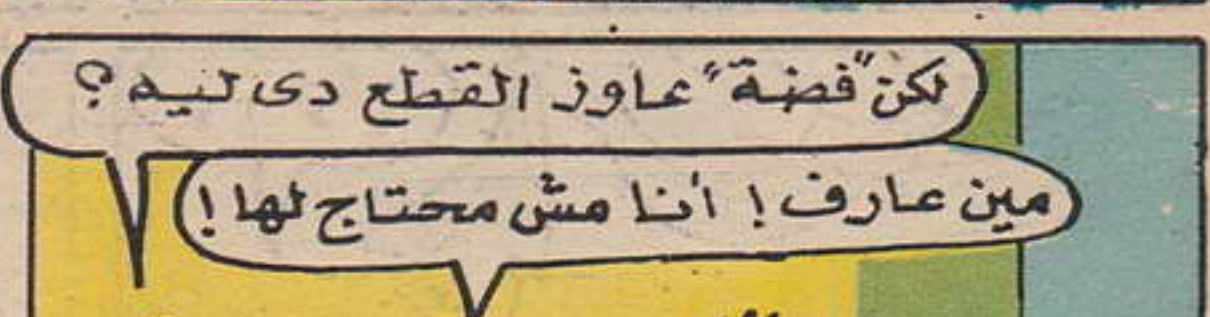 لكن "فضة" عاوز القطع دى ليه ؟
مين عارف ! أنا مش محتاج لها !